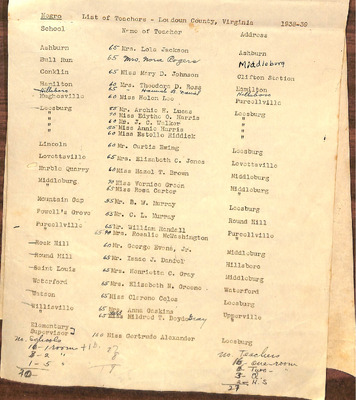 Negro List of Teachers - Loudoun County, Virginia 1938-39
School Name of Teacher Address
Ashburn 65 Mrs. Lola Jackson Ashburn
Bull Run 65 Mrs. Nora Rogers Middleburg
Conklin 65 Miss Mary D. Johnson Clifton Station
Hamilton 60 Mrs. Theodora D. Ross Hamilton
Hillsboro 65 Hillsboro
Hughesville 65 Miss Helen Lee Purcellville
Leesburg Mr. Archie H. Lucas Leesburg
" 70 Miss Edythe C. Harris "
" 60 Mr. J. C. Walker "
" 55 Miss Annie Harris "
" 60 Miss Estelle Riddick "
Lincoln 60 Mr. Curtis Ewing Leesburg
Lovettsville 65 Mrs. Elizabeth C. Jones Lovettsville
Marble Quarry 60 Miss Hazel T. Brown Middleburg
Middleburg 70 Miss Vernice Green Middleburg
" 65 Miss Rosa Carter "
Mountain Gap 65 Mr. B. W. Murray Leesburg
Powell's Grove 65 Mr. C. L. Murray Round Hill
Purcellville 65 Mr. William Randall Purcellville
" Mrs. Rosalie McWashington "
Rock Hill 60 Mr. George Evans, Jr. Middleburg
Round Hill 65 Mr. Isaac J. Daniel Hillsboro
Saint Louis 65 Mrs. Henrietta C. Gray Middleburg
Waterford 60 Mrs. Elizabeth N. Greene Waterford
Watson 65 Miss Clarene Coles Leesburg
Willisville 65 Mrs. Anna Gaskins Upperville
65 Miss Mildred T. Boyd Gray "
Elementary
Supervisor 100 Miss Gertrude Alexander Leesburg
No. Schools No. Teachers
16 - 1 room 16 - one-room
3 - 2 " 6 - Two - "
1 - 5 "
20 27